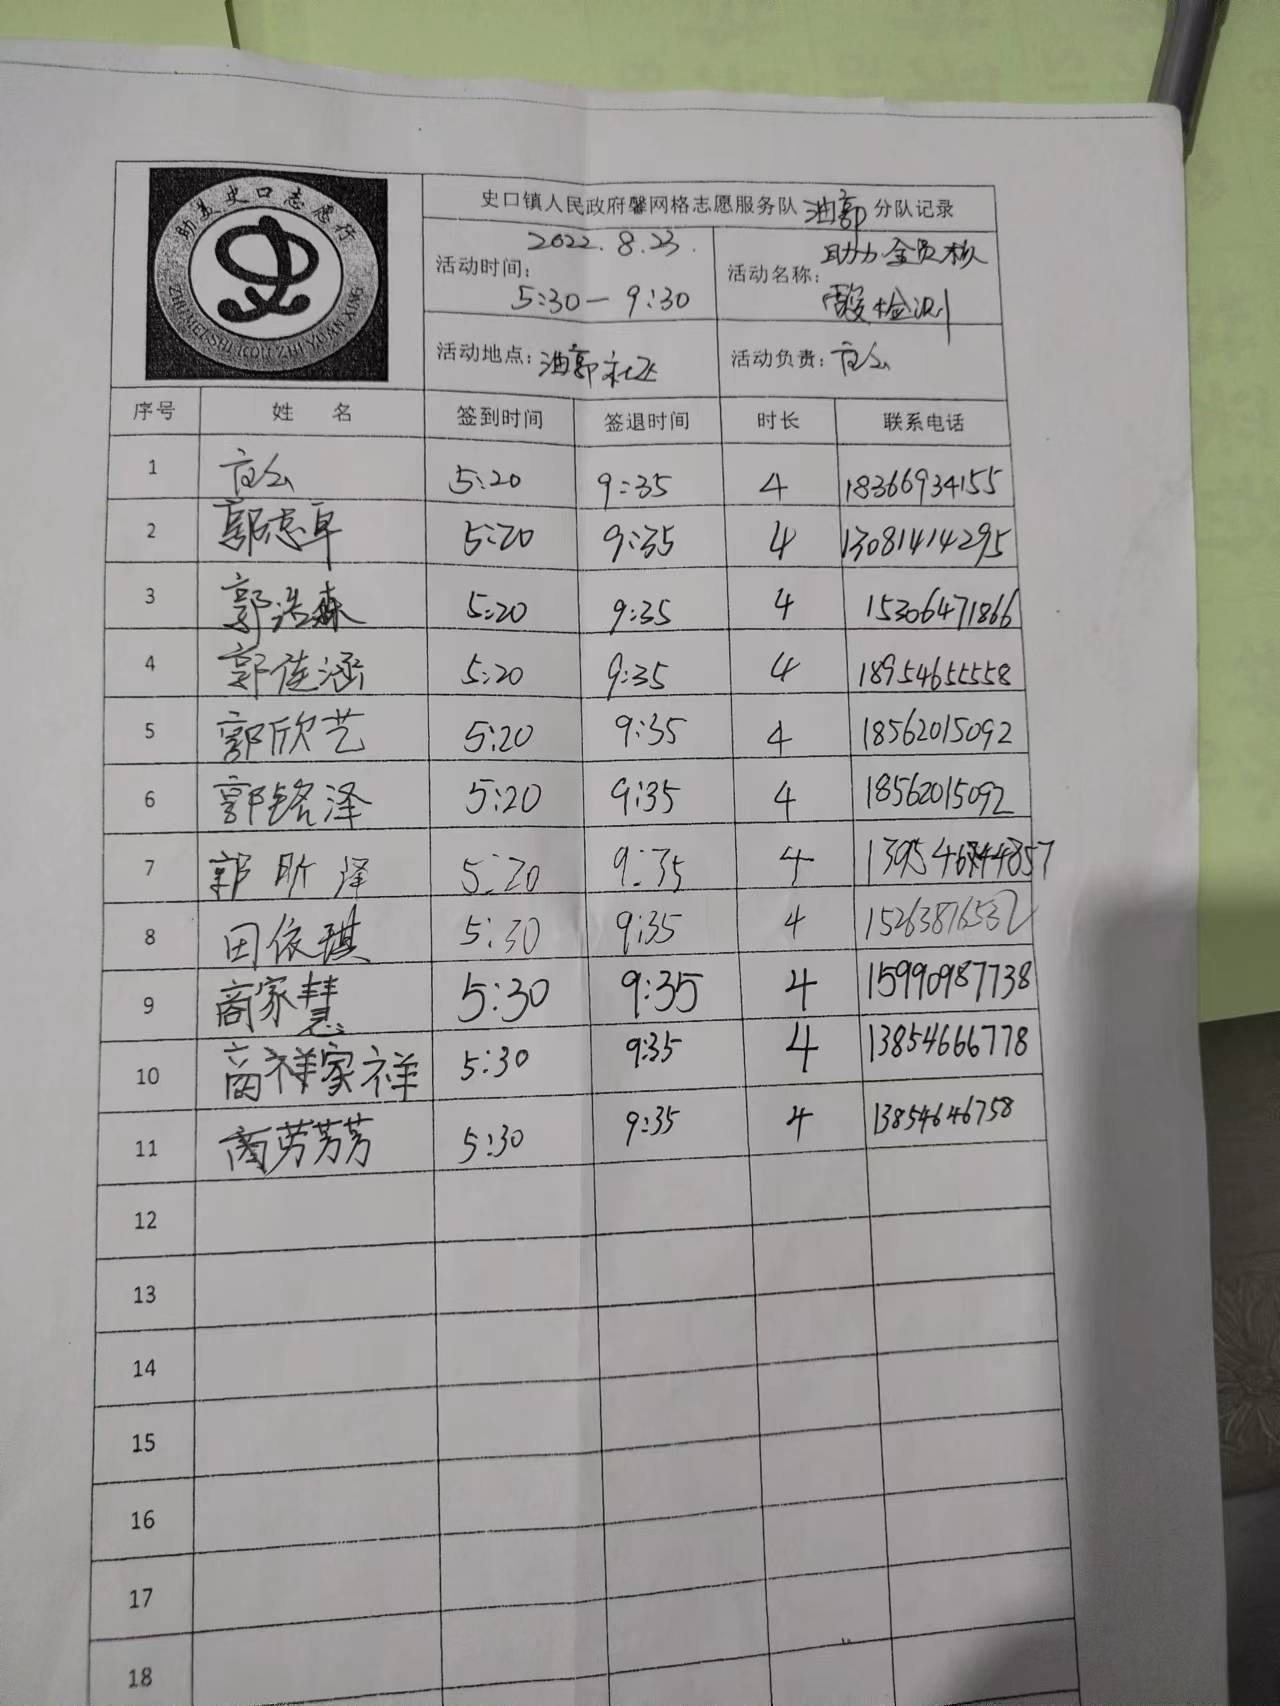 助美史口志愿行
ZHU MEI SHI KOU ZHI YUAN XING
史口镇人民政府馨网格志愿服务队油郭分队记录
活动时间: 2022.8.23.
5:30—9:30
活动名称: 助力全员核
酸检测
活动地点: 油郭社区
活动负责:
序号 姓 名 签到时间 签退时间 时长 联系电话
1 5:20 9:35 4 18366934155
2 郭志卓 5:20 9:35 4 13081414295
3 郭浩森 5:20 9:35 4 15306471866
4 郭佳涵 5:20 9:35 4 18954655558
5 郭欣艺 5:20 9:35 4 18562015092
6 郭铭泽 5:20 9:35 4 18562015092
7 郭昕泽 5:20 9:35 4
8 田依琪 5:30 9:35 4 15263816532
9 商家慧 5:30 9:35 4 15990987738
10 商祥家祥 5:30 9:35 4 13854666778
11 商芳芳芳 5:30 9:35 4 13854646758
12
13
14
15
16
17
18